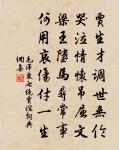 賈生才調世無倫
哭泣情懷吊屈文
梁王墮馬尋常事
何用哀傷付一生
毛澤東七絕賈誼詞典
網集